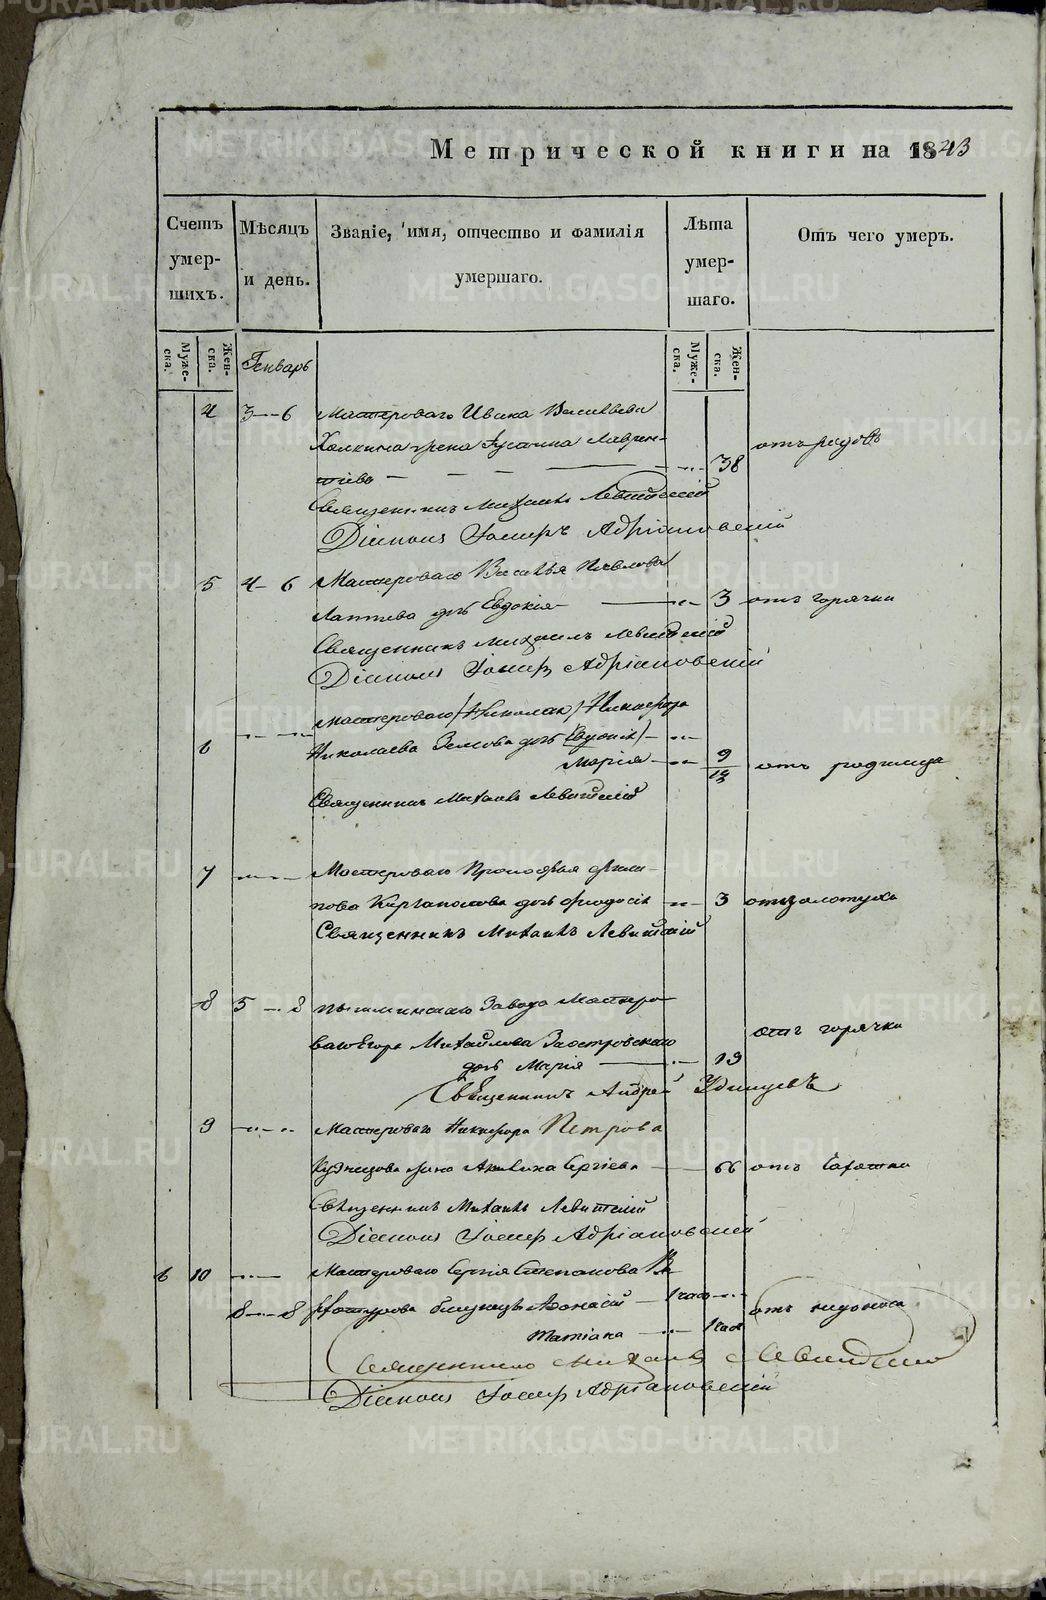 Метрической книги на 1843
Счетъ умер-шихъ.
Мѣсяцъ и день.
Званіе, имя, отчество и фамилія умершаго.
Лѣта умер-шаго.
Отъ чего умеръ.
Муже-ска.
Жен-ска.
Генварь
Муже-ска.
Жен-ска.
4 3 — 6 Мастероваго Ивана Васильева
жена Іустина Лаврен- 38 отъ родовъ
тіева
Священникъ Михаилъ Левитскій
Діаконъ Іосифъ Адріановскій
5 4 — 6 Мастероваго Василья Павлова
Лаптева дочь Евдокія 3 отъ горячки
Священникъ Михаилъ Левитскій
Діаконъ Іосифъ Адріановскій
Мастероваго (Николая) Никифора
6 Николаева дочь (Евдокія)
Марія 9/12 отъ родимца
Священникъ Михаилъ Левитскій
7 Мастероваго Прокофья Фили-
пова Каргаполова дочь Феодосія 3 отъ золотухи
Священникъ Михаилъ Левитскій
8 5 — 8 Пышминскаго Завода Мастеро-
ваго Егора Михайлова Заостровскаго отъ горячки
дочь Марія 19
Священникъ Андрей Удинцевъ
9 Мастероваго Никифора Петрова
Кузнецова жена Акилина Сергіева 66 отъ чахотки
Священникъ Михаилъ Левитскій
Діаконъ Іосифъ Адріановскій
6 10 Мастероваго Сергія Степанова
8 — 8 близнецы Афонасій 1 часъ отъ недоноса
Татіана 1 часъ
Священникъ Михаилъ Левитскій
Діаконъ Іосифъ Адріановскій
METRIKI.GASO-URAL.RU